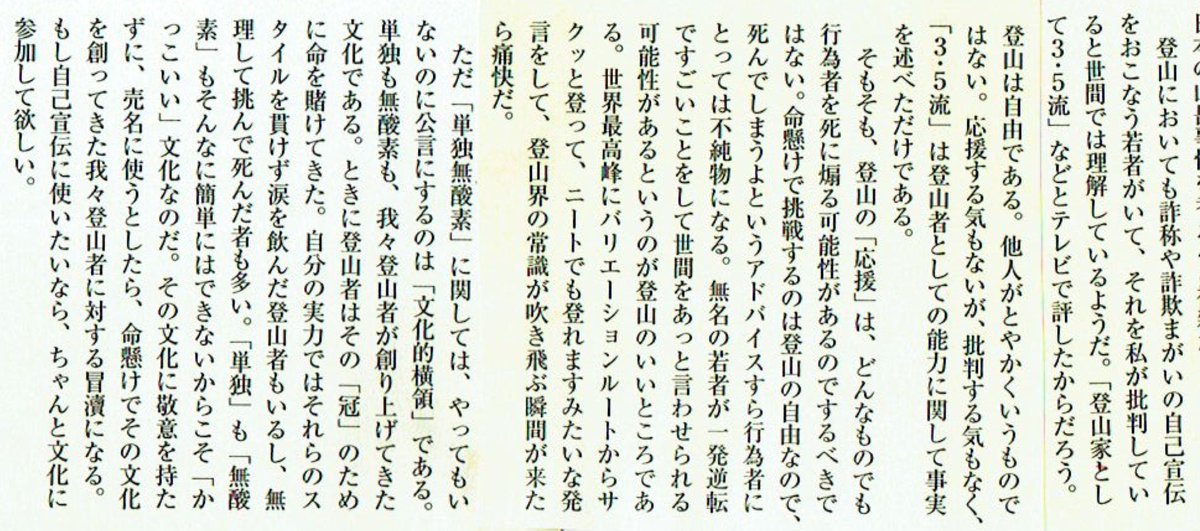 登山においても詐称や詐欺まがいの自己宣伝
をおこなう若者がいて、それを私が批判してい
ると世間では理解しているようだ。「登山家とし
て3・5流」などとテレビで評したからだろう。
登山は自由である。他人がとやかくいうもので
はない。応援する気もないが、批判する気もなく、
「3・5流」は登山者としての能力に関して事実
を述べただけである。
そもそも、登山の「応援」は、どんなものでも
行為者を死に煽る可能性があるのでするべきで
はない。命懸けで挑戦するのは登山の自由なので、
死んでしまうよというアドバイスすら行為者に
とっては不純物になる。無名の若者が一発逆転
ですごいことをして世間をあっと言わせられる
可能性があるというのが登山のいいところであ
る。世界最高峰にバリエーションルートからサ
クッと登って、ニートでも登れますみたいな発
言をして、登山界の常識が吹き飛ぶ瞬間が来た
ら痛快だ。
ただ「単独無酸素」に関しては、やってもい
ないのに公言にするのは「文化的横領」である。
単独も無酸素も、我々登山者が創り上げてきた
文化である。ときに登山者はその「冠」のため
に命を賭けてきた。自分の実力ではそれらのス
タイルを貫けず涙を飲んだ登山者もいるし、無
理して挑んで死んだ者も多い。「単独」も「無酸
素」もそんなに簡単にはできないからこそ「か
っこいい」文化なのだ。その文化に敬意を持た
ずに、売名に使うとしたら、命懸けでその文化
を創ってきた我々登山者に対する冒瀆になる。
もし自己宣伝に使いたいなら、ちゃんと文化に
参加して欲しい。